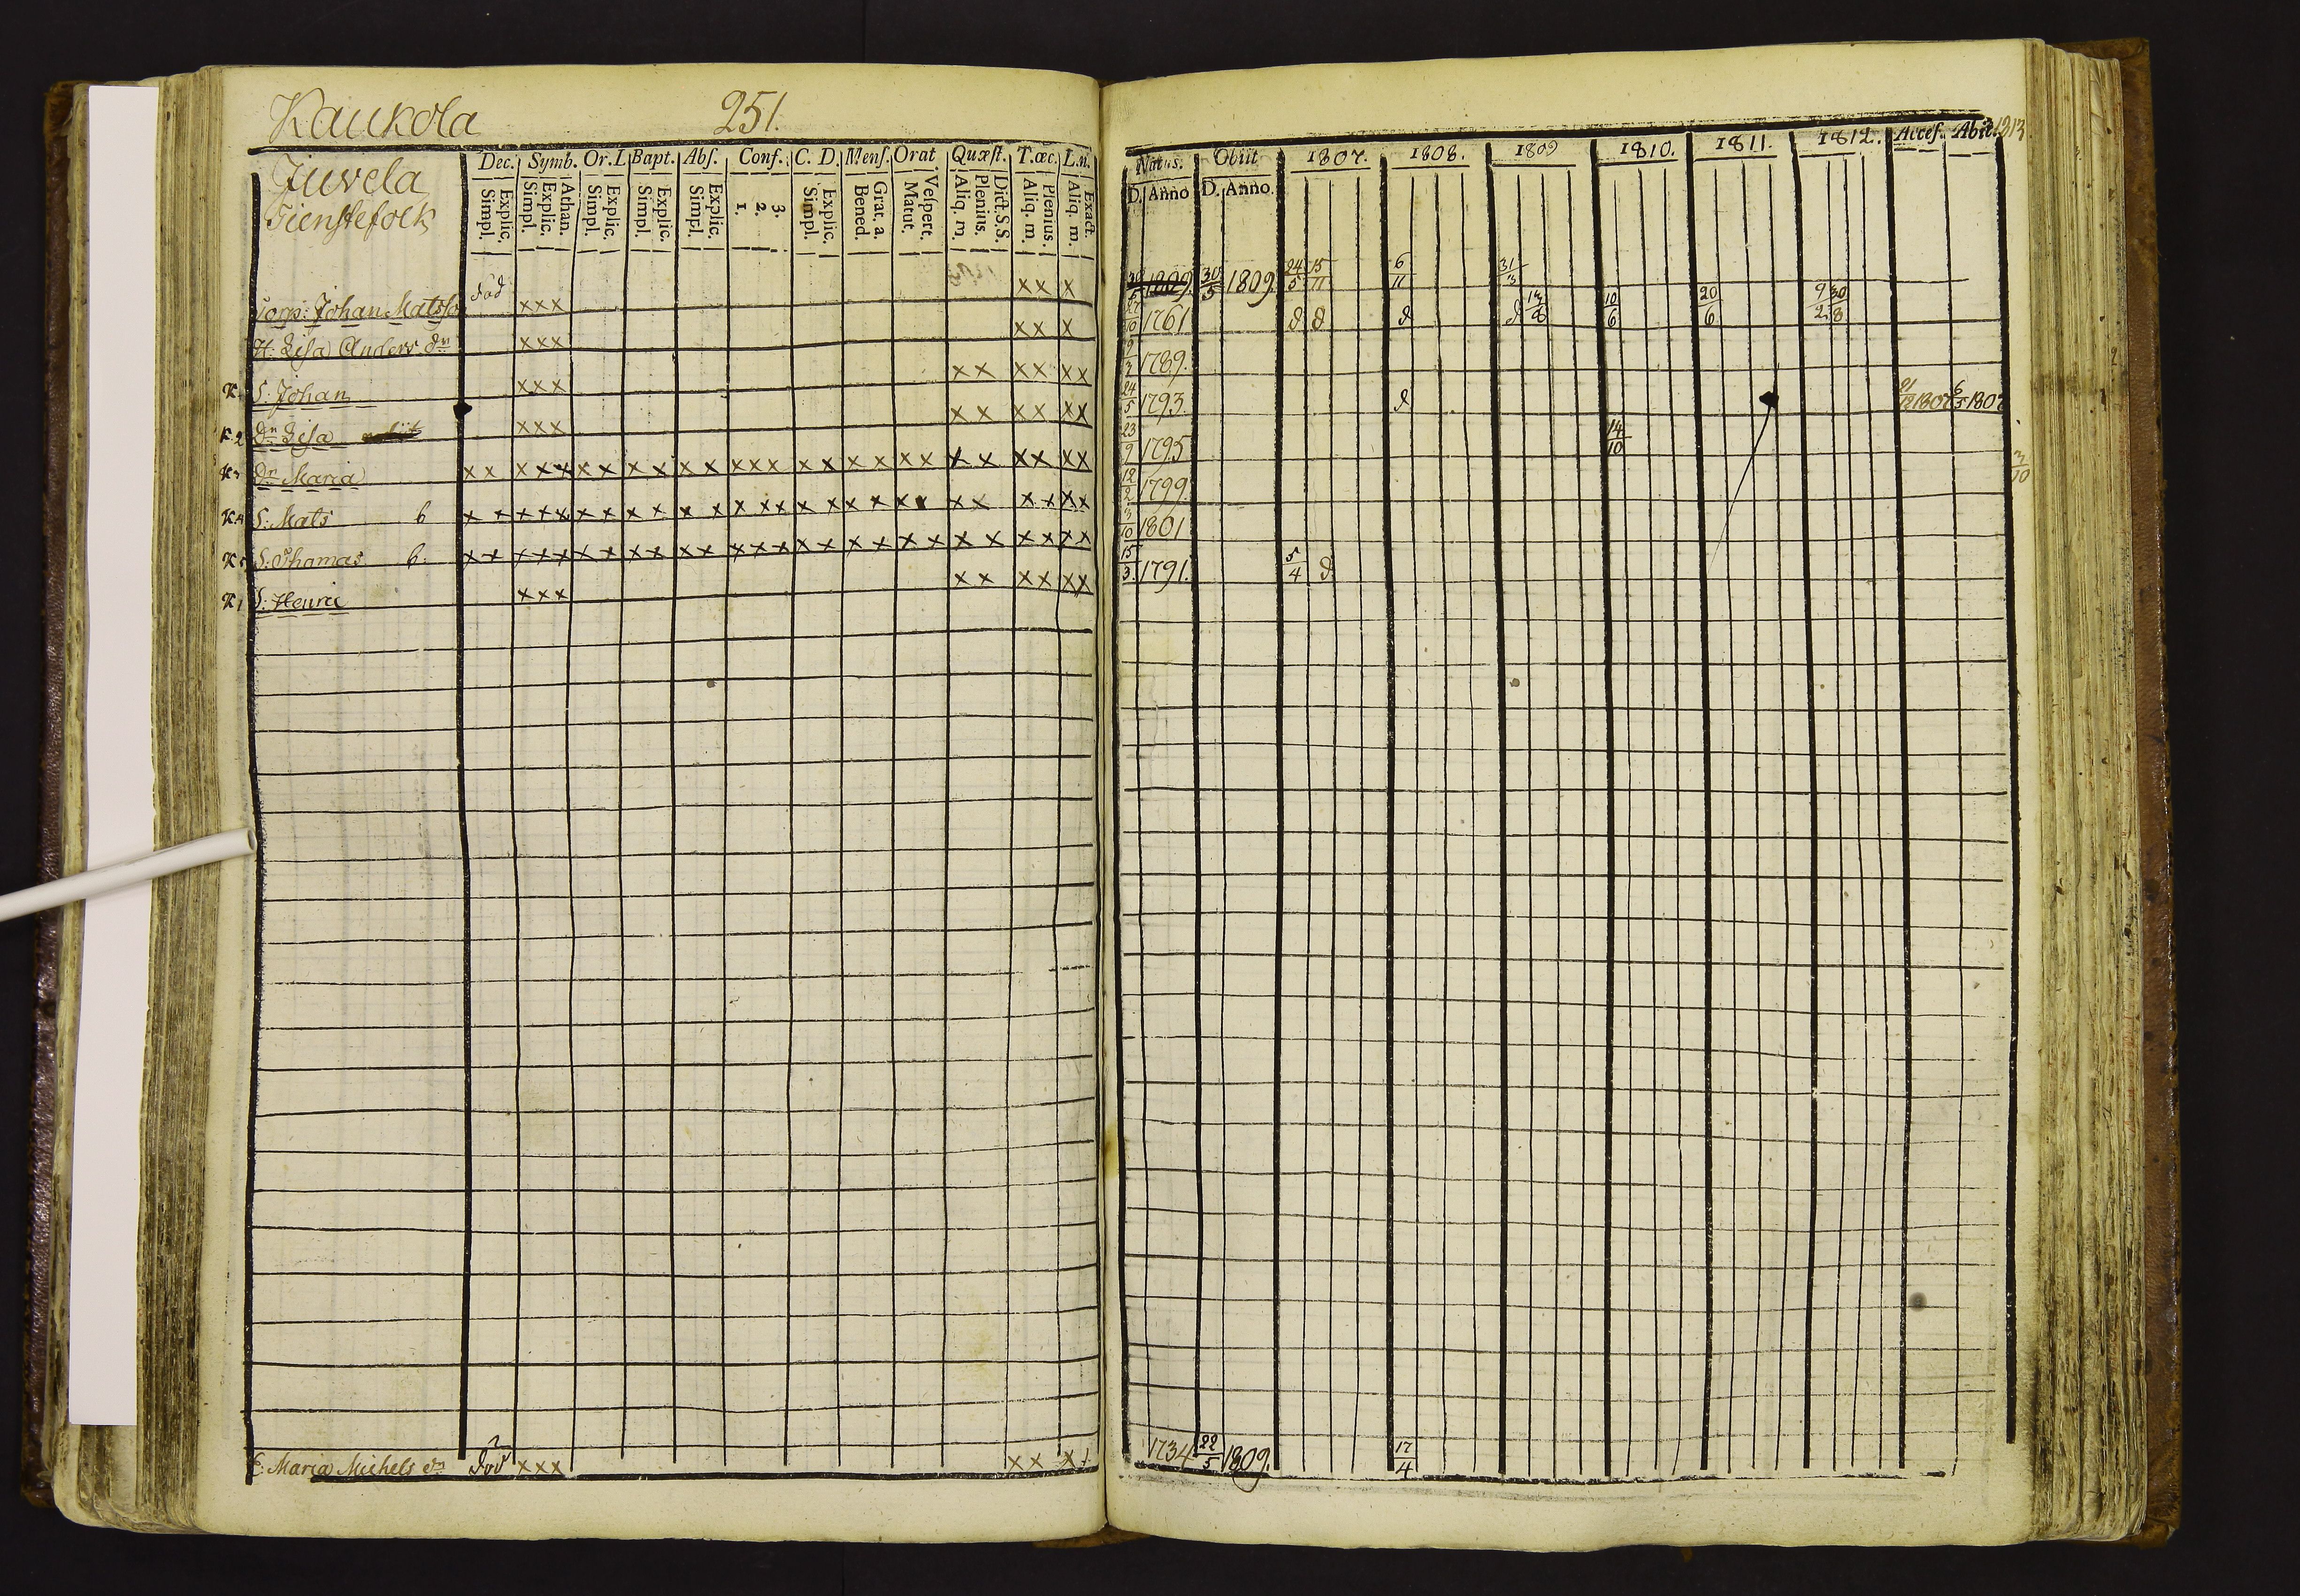 Kaukola 251.
Juvela
Tienstefolk
Dec. Symb. Or. L Bapt. Abſ. Conf. C. D. Menſ. Orat Quæſt. T. œc. L. n.
Explic. Simpl. Athan. Explic. Simpl. Explic. Simpl. Explic. Simpl. Explic. Simpl. 3. 2. 1. Explic. Simpl. Grat. a. Bened. Veſpert. Matut. Dict. S. S. Plenius. Aliq. m. Plenius. Aliq. m. Exact. Aliq. m.
Torp: Johan Matsſo död xxx xx x
H. Lisa Anders dr xxx xx x
K1 S. Johan xxx xx xx xx
K2 Dr Lisa xxx xx xx xx
K3 Dr Maria xx xxx xx xx xx xxx xx xx xx xx xx xx
K4 S: Mats 6 xx xxx xx xx xx xxx xx xx xx xx xx xx
K5 S: Thomas 6: xx xxx xx xx xx xxx xx xx xx xx xx xx
K1 S: Henric xxx xx xx xx
E: Maria Michels dr död xxx xx x
Natus. Obiit 1807. 1808. 1809 1810. 1811. 1812. Acceſ. Abit. 1213
D. Anno D. Anno.
1809 30/5 1809 24/5 15/11 6/11 31/3
27/10 1761 d d d d 13/8 10/6 20/6 9/2 30/8
9/3 1789.
24/5 1793 d 6/5 1807
23/9 1795 14/10
12/2 1799. 3/10
3/10 1801
15/3 1791. 5/4 d
1734 22/5 1809 17/4